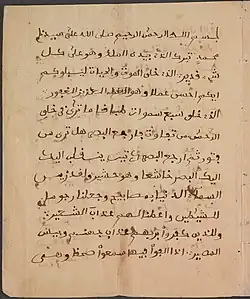 بسم الله الرحمن الرحيم صلى الله على سيدنا
محمد تبرك الذي بيده الملك وهو على كل
شيء قدير الذي خلق الموت والحياة ليبلوكم
ايكم احسن عملا وهو العزيز الغفور
الذي خلق سبع سموات طباقا ما ترى في خلق
الرحمن من تفاوت فارجع البصر هل ترى من
فطور ثم ارجع البصر كرتين ينقلب اليك
اليك البصر خاسئا وهو حسير ولقد زينا
السماء الدنيا بمصابيح وجعلنا رجوما
للشيطين واعتدنا لهم عذاب السعير
وللذين كفروا بربهم عذاب جهنم وبيس
المصير اذا القوا فيها سمعوا وهي